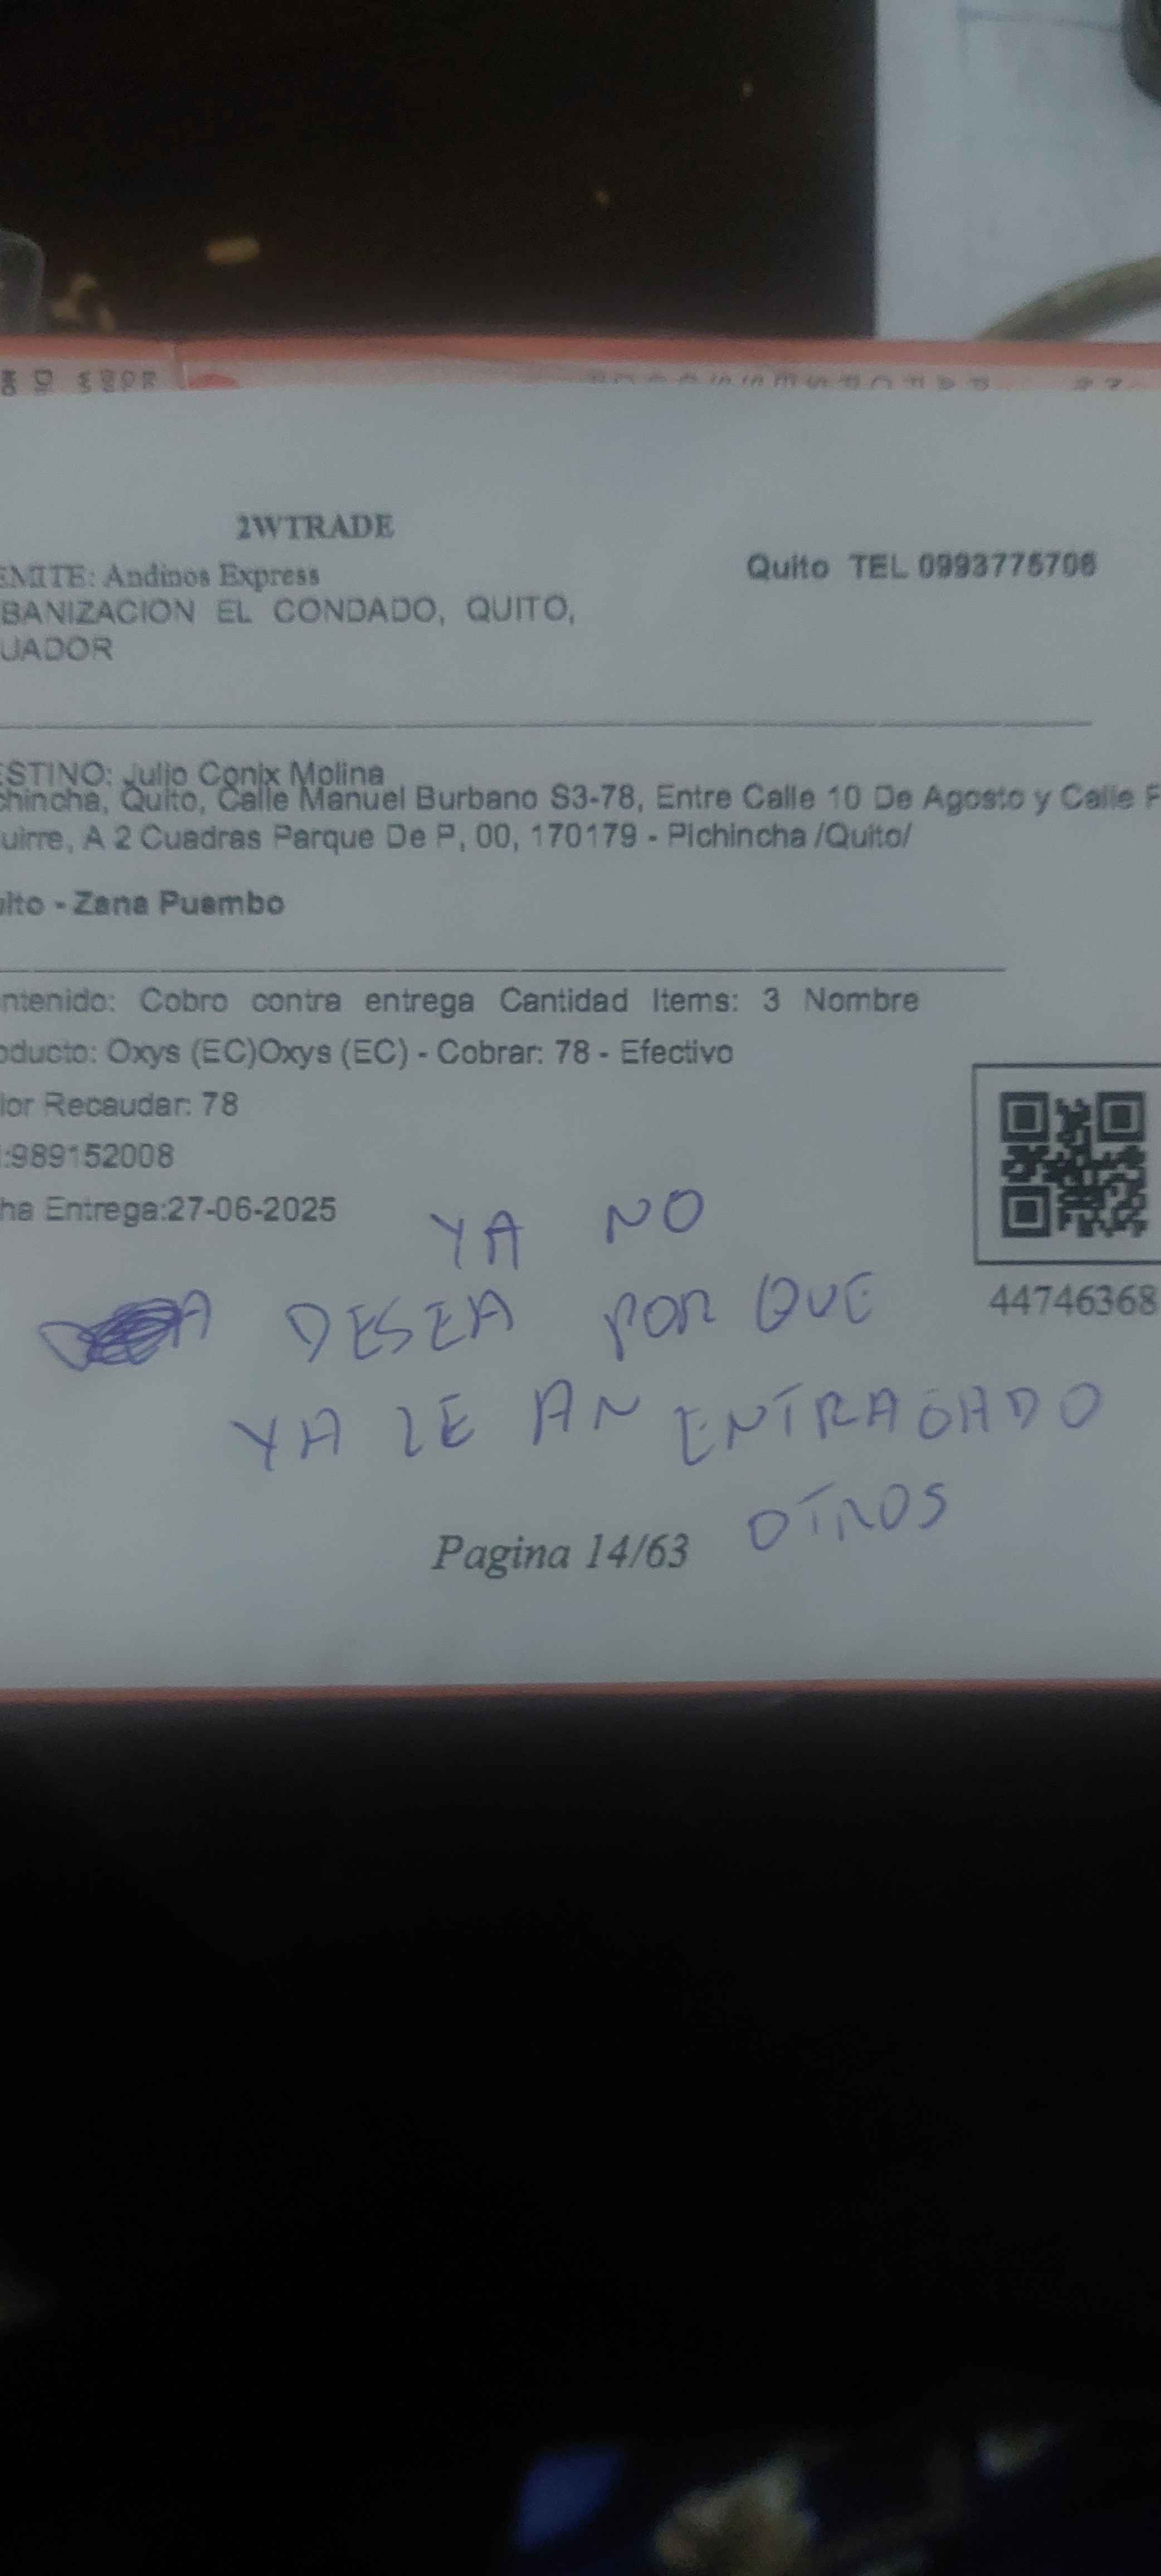 2WTRADE
EMITE: Andinos Express
Quito TEL 0993775706
BANIZACION EL CONDADO, QUITO,
UADOR
STINO: Julio Conix Molina
chincha, Quito, Calle Manuel Burbano S3-78, Entre Calle 10 De Agosto y Calle
uirre, A 2 Cuadras Parque De P, 00, 170179 - Pichincha /Quito/
ito - Zana Puembo
ntenido: Cobro contra entrega Cantidad Items: 3 Nombre
oducto: Oxys (EC)Oxys (EC) - Cobrar: 78 - Efectivo
lor Recaudar: 78
:989152008
ha Entrega:27-06-2025
44746368
YA NO
DESEA POR QUE
YA LE AN ENTRAGADO
OTROS
Pagina 14/63